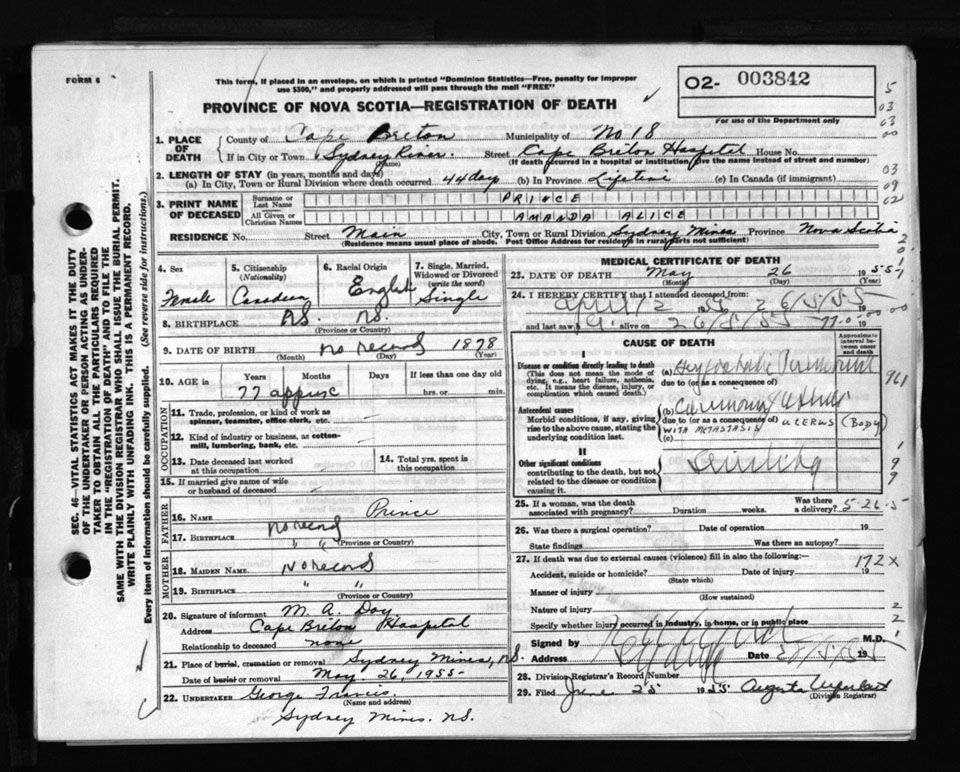 FORM 6
This form, if placed in an envelope, on which is printed "Dominion Statistics—Free, penalty for improper
use $300," and properly addressed will pass through the mail "FREE"
02- 003842
PROVINCE OF NOVA SCOTIA—REGISTRATION OF DEATH
For use of the Department only
1. PLACE OF DEATH County of Cape Breton Municipality of No 18
If in City or Town Sydney River. Street Cape Breton Hospital House No.
(Name) (If death occurred in a hospital or institution, give the name instead of street and number)
2. LENGTH OF STAY (in years, months and days)
(a) In City, Town or Rural Division where death occurred 44 days (b) In Province Lifetime (c) In Canada (if immigrant)
3. PRINT NAME OF DECEASED Surname or Last Name PRINCE
All Given or Christian Names AMANDA ALICE
RESIDENCE No. Street Main City, Town or Rural Division Sydney Mines Province Nova Scotia
(Residence means usual place of abode. Post Office Address for residents in rural parts not sufficient)
4. Sex Female
5. Citizenship (Nationality) Canadian
6. Racial Origin English
7. Single, Married, Widowed or Divorced (write the word) Single
8. BIRTHPLACE N.S. N.S.
(Province or Country)
9. DATE OF BIRTH no record 1878
(Month) (Day) (Year)
10. AGE in Years Months Days If less than one day old
77 approx hrs. or min.
OCCUPATION
11. Trade, profession, or kind of work as spinner, teamster, office clerk, etc.
12. Kind of industry or business, as cotton-mill, lumbering, bank, etc.
13. Date deceased last worked at this occupation
14. Total yrs. spent in this occupation
15. If married give name of wife or husband of deceased
FATHER
16. NAME Prince
17. BIRTHPLACE no record
" " (Province or Country)
MOTHER
18. MAIDEN NAME. No record
19. BIRTHPLACE " "
(Province or Country)
20. Signature of informant M. A. Doy.
Address Cape Breton Hospital
Relationship to deceased none
21. Place of burial, cremation or removal Sydney Mines, N.S.
Date of burial or removal May. 26, 1955
22. UNDERTAKER George Francis.
(Name and address)
Sydney Mines. N.S.
MEDICAL CERTIFICATE OF DEATH
23. DATE OF DEATH May 26 1955
(Month) (Day)
24. I HEREBY CERTIFY that I attended deceased from:
April 12 26/5/55
and last saw alive on 26/5/55
CAUSE OF DEATH
Approximate interval between onset and death
I
Disease or condition directly leading to death
(This does not mean the mode of dying, e.g., heart failure, asthenia, etc. It means the disease, injury, or complication which caused death.)
(a)
due to (or as a consequence of)
Antecedent causes
Morbid conditions, if any, giving rise to the above cause, stating the underlying condition last.
(b) Carcinoma of the
due to (or as a consequence of) UTERUS (BODY)
WITH METASTASIS
(c)
II
Other significant conditions
contributing to the death, but not related to the disease or condition causing it.
Senility
25. If a woman, was the death associated with pregnancy? Duration weeks. Was there a delivery? 5-26-5
26. Was there a surgical operation? Date of operation 19
State findings Was there an autopsy?
27. If death was due to external causes (violence) fill in also the following:—
Accident, suicide or homicide? Date of injury 19
(State which)
172 X
Manner of injury
(How sustained)
Nature of injury
Specify whether injury occurred in industry, in home, or in public place
Signed by M.D.
Address Sydney Date 26/5/1955
28. Division Registrar's Record Number
29. Filed June 25 1955 Augusta
(Division Registrar)
SEC. 46—VITAL STATISTICS ACT MAKES IT THE DUTY
OF THE UNDERTAKER OR PERSON ACTING AS UNDER-
TAKER TO OBTAIN ALL THE PARTICULARS REQUIRED
IN THE "REGISTRATION OF DEATH" AND TO FILE THE
SAME WITH THE DIVISION REGISTRAR WHO SHALL ISSUE THE BURIAL PERMIT.
WRITE PLAINLY WITH UNFADING INK. THIS IS A PERMANENT RECORD.
Every item of information should be carefully supplied. (See reverse side for instructions.)